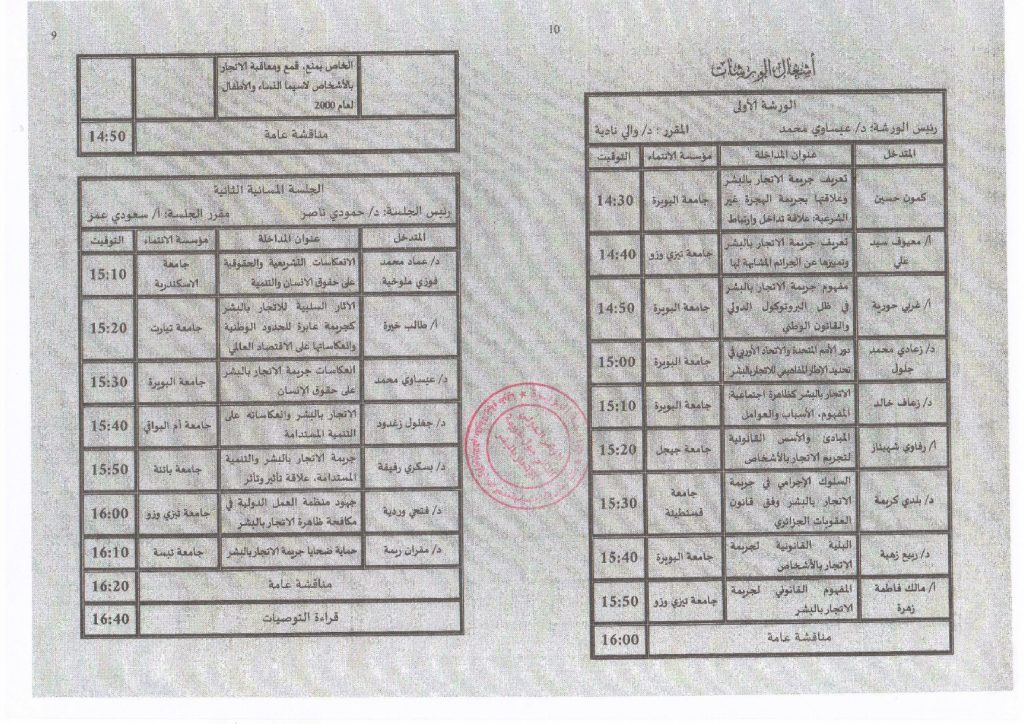 9
الخاص بمنع، قمع ومعاقبة الاتجار
بالأشخاص لاسيما النساء والأطفال
لعام 2000
مناقشة عامة 14:50
الجلسة المسائية الثانية
رئيس الجلسة: د/ حمودي ناصر مقرر الجلسة: أ/ سعودي عمر
المتدخل عنوان المداخلة مؤسسة الانتماء التوقيت
د/ عماد محمد الانعكاسات التشريعية والحقوقية جامعة 15:10
فوزي ملوخية على حقوق الانسان والتنمية الاسكندرية
الآثار السلبية للاتجار بالبشر
أ/ طالب خيرة كجريمة عابرة للحدود الوطنية جامعة تيارت 15:20
وانعكاساتها على الاقتصاد العالمي
د/ عيساوي محمد انعكاسات جريمة الاتجار بالبشر جامعة البويرة 15:30
على حقوق الإنسان
د/ جغلول زغدود الاتجار بالبشر وانعكاساته على جامعة أم البواقي 15:40
التنمية المستدامة
د/ بسكري رفيقة جريمة الاتجار بالبشر والتنمية جامعة باتنة 15:50
المستدامة، علاقة تأثير وتأثر
د/ فتحي وردية جهود منظمة العمل الدولية في جامعة تيزي وزو 16:00
مكافحة ظاهرة الاتجار بالبشر
د/ مقران ريمة حماية ضحايا جريمة الاتجار بالبشر جامعة تبسة 16:10
مناقشة عامة 16:20
قراءة التوصيات 16:40
10
أشغال الورشات
الورشة الأولى
رئيس الورشة: د/ عيساوي محمد المقرر: د/ والي نادية
المتدخل عنوان المداخلة مؤسسة الانتماء التوقيت
تعريف جريمة الاتجار بالبشر
كمون حسين وعلاقتها بجريمة الهجرة غير جامعة البويرة 14:30
الشرعية: علاقة تداخل وارتباط
أ/ معيوف سيد تعريف جريمة الاتجار بالبشر جامعة تيزي وزو 14:40
علي وتمييزها عن الجرائم المشابهة لها
مفهوم جريمة الاتجار بالبشر
أ/ غربي حورية في ظل البروتوكول الدولي جامعة البويرة 14:50
والقانون الوطني
د/ زعادي محمد دور الأمم المتحدة والاتحاد الأوربي في جامعة البويرة 15:00
جلول تحديد الإطار المفاهيمي للاتجار بالبشر
د/ زعاف خالد الاتجار بالبشر كظاهرة اجتماعية: جامعة البويرة 15:10
المفهوم، الأسباب والعوامل
أ/ رفاوي شهيناز المبادئ والأسس القانونية جامعة جيجل 15:20
لتجريم الاتجار بالأشخاص
السلوك الإجرامي في جريمة جامعة
د/ بلدي كريمة الاتجار بالبشر وفق قانون قسنطينة 15:30
العقوبات الجزائري
د/ ربيع زهية البنية القانونية لجريمة جامعة البويرة 15:40
الاتجار بالأشخاص
أ/ مالك فاطمة المفهوم القانوني لجريمة جامعة تيزي وزو 15:50
زهرة الاتجار بالبشر
مناقشة عامة 16:00